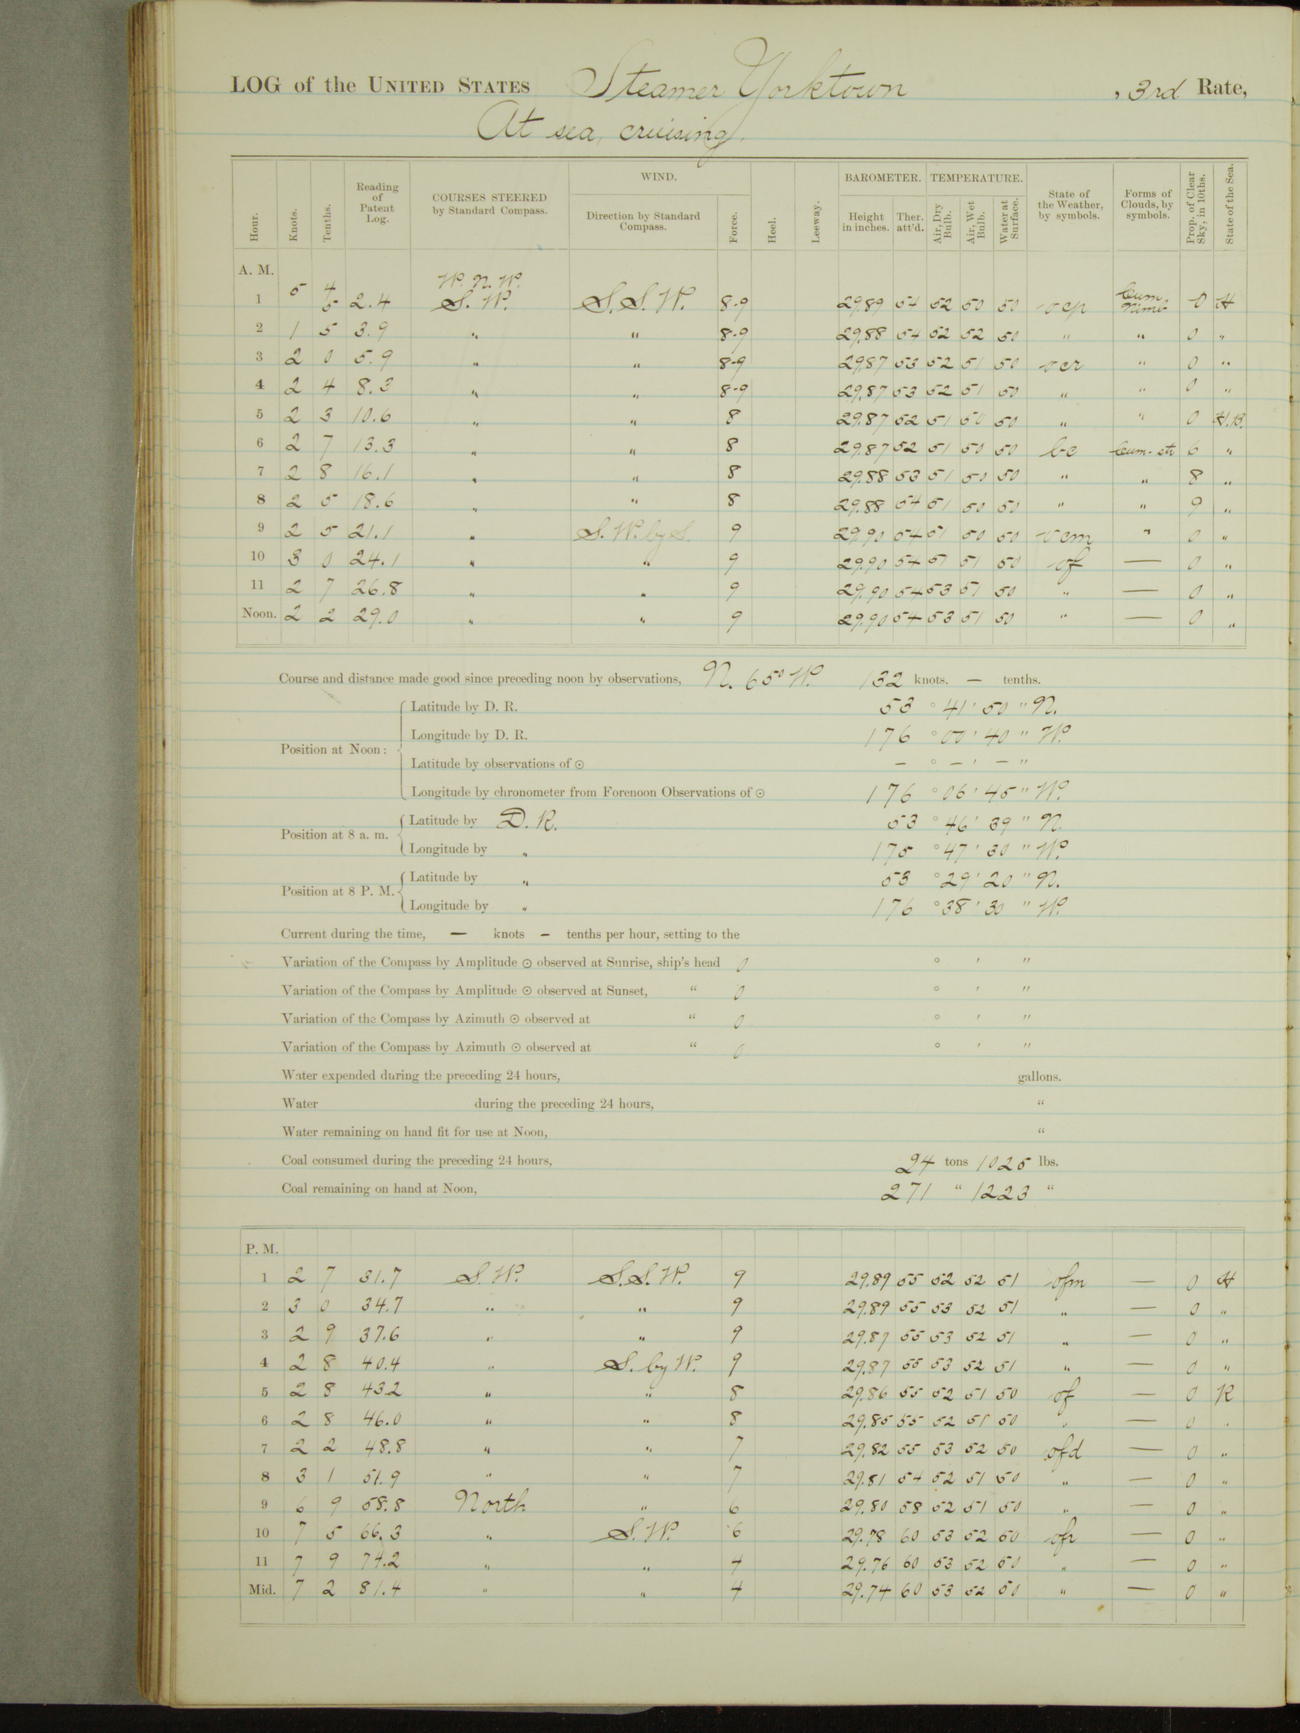 LOG of the UNITED STATES Steamer Yorktown , 3rd Rate,
At sea, cruising.
Hour. Knots. Tenths. Reading of Patent Log. COURSES STEERED by Standard Compass. WIND. Direction by Standard Compass. Force. Heel. Leeway. BAROMETER. Height in inches. Ther. att'd. TEMPERATURE. Air, Dry Bulb. Air, Wet Bulb. Water at Surface. State of the Weather, by symbols. Forms of Clouds, by symbols. Prop. of Clear Sky, in 10ths. State of the Sea.
A. M.
5 4 W. N. W.
1 5 2.4 S. W. S. S. W. 8-9 29.89 54 52 50 50 ocp Cum. Nimb 0 H
2 1 5 3.9 " " 8-9 29.88 54 52 52 50 " " 0 "
3 2 0 5.9 " " 8-9 29.87 53 52 51 50 ocr " 0 "
4 2 4 8.3 " " 8-9 29.87 53 52 51 50 " " 0 "
5 2 3 10.6 " " 8 29.87 52 51 50 50 " " 0 H.B.
6 2 7 13.3 " " 8 29.87 52 51 50 50 bc Cum-str 6 "
7 2 8 16.1 " " 8 29.88 53 51 50 50 " " 8 "
8 2 5 18.6 " " 8 29.88 54 51 50 50 " " 9 "
9 2 5 21.1 " S. W. by S. 9 29.90 54 51 50 50 ocm " 0 "
10 3 0 24.1 " " 9 29.90 54 51 51 50 of — 0 "
11 2 7 26.8 " " 9 29.90 54 53 51 50 " — 0 "
Noon. 2 2 29.0 " " 9 29.90 54 53 51 50 " — 0 "
Course and distance made good since preceding noon by observations, N. 65° W. 132 knots. — tenths.
Latitude by D. R. 53 ° 41 ' 50 " N.
Longitude by D. R. 176 ° 00 ' 40 " W.
Position at Noon:
Latitude by observations of ⊙ — ° — ' — "
Longitude by chronometer from Forenoon Observations of ⊙ 176 ° 06 ' 45 " W.
Position at 8 a. m. Latitude by D. R. 53 ° 46 ' 39 " N.
Longitude by " 175 ° 47 ' 30 " W.
Position at 8 P. M. Latitude by " 53 ° 29 ' 20 " N.
Longitude by " 176 ° 38 ' 30 " W.
Current during the time, — knots — tenths per hour, setting to the
Variation of the Compass by Amplitude ⊙ observed at Sunrise, ship's head 0 ° ' "
Variation of the Compass by Amplitude ⊙ observed at Sunset, " 0 ° ' "
Variation of the Compass by Azimuth ⊙ observed at " 0 ° ' "
Variation of the Compass by Azimuth ⊙ observed at " 0 ° ' "
Water expended during the preceding 24 hours, gallons.
Water during the preceding 24 hours, "
Water remaining on hand fit for use at Noon, "
Coal consumed during the preceding 24 hours, 24 tons 1025 lbs.
Coal remaining on hand at Noon, 271 " 1223 "
P. M.
1 2 7 31.7 S. W. S. S. W. 9 29.89 55 52 52 51 ofm — 0 H
2 3 0 34.7 " " 9 29.89 55 53 52 51 " — 0 "
3 2 9 37.6 " " 9 29.87 55 53 52 51 " — 0 "
4 2 8 40.4 " S. by W. 9 29.87 55 53 52 51 " — 0 "
5 2 8 43.2 " " 8 29.86 55 52 51 50 of — 0 R
6 2 8 46.0 " " 8 29.85 55 52 51 50 " — 0 "
7 2 2 48.8 " " 7 29.82 55 53 52 50 ofd — 0 "
8 3 1 51.9 " " 7 29.81 54 52 51 50 " — 0 "
9 6 9 58.8 North " 6 29.80 58 52 51 50 " — 0 "
10 7 5 66.3 " S. W. 6 29.78 60 53 52 50 ofr — 0 "
11 7 9 74.2 " " 4 29.76 60 53 52 50 " — 0 "
Mid. 7 2 81.4 " " 4 29.74 60 53 52 50 " — 0 "